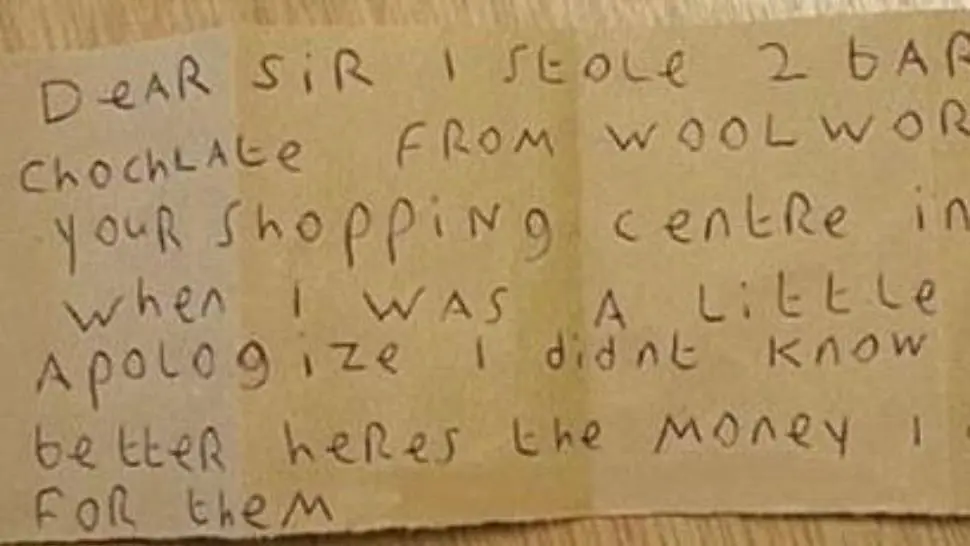 DeAR SiR I StOLe 2 bAR
ChOChLAte FROM WOOLWOR
yOuR ShOppiNg centRe in
when I WAS A Little
ApOLOgize I didnt KnOW
better heRes the Money I
FOR theM